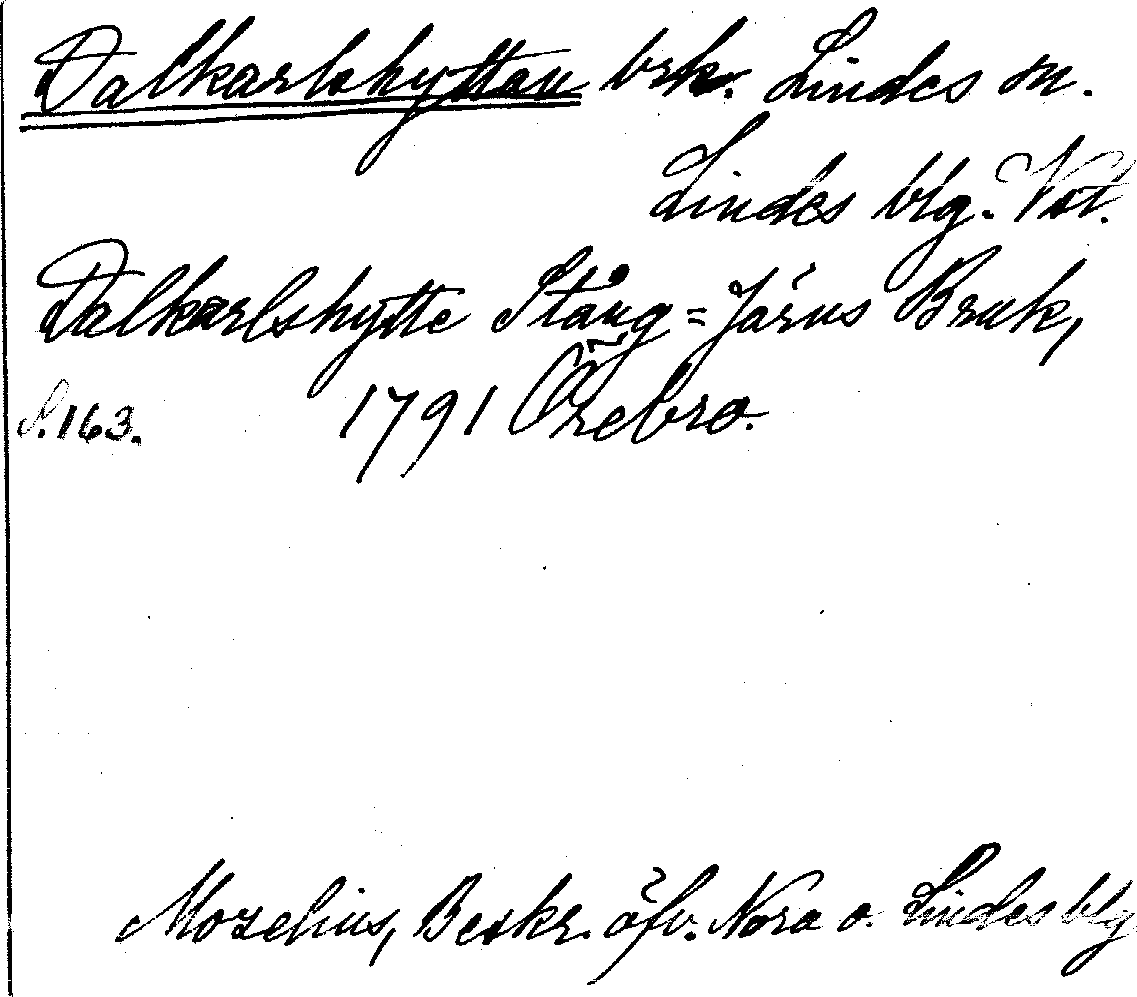 Dalkarlshyttan brk. Lindes sn.
Lindes blg. Vstl.
Dalkarlshytte Stång=Järns Bruk,
S. 163. 1791 Örebro.
Mozelius, Beskr. öfv. Nora o. Lindes blg